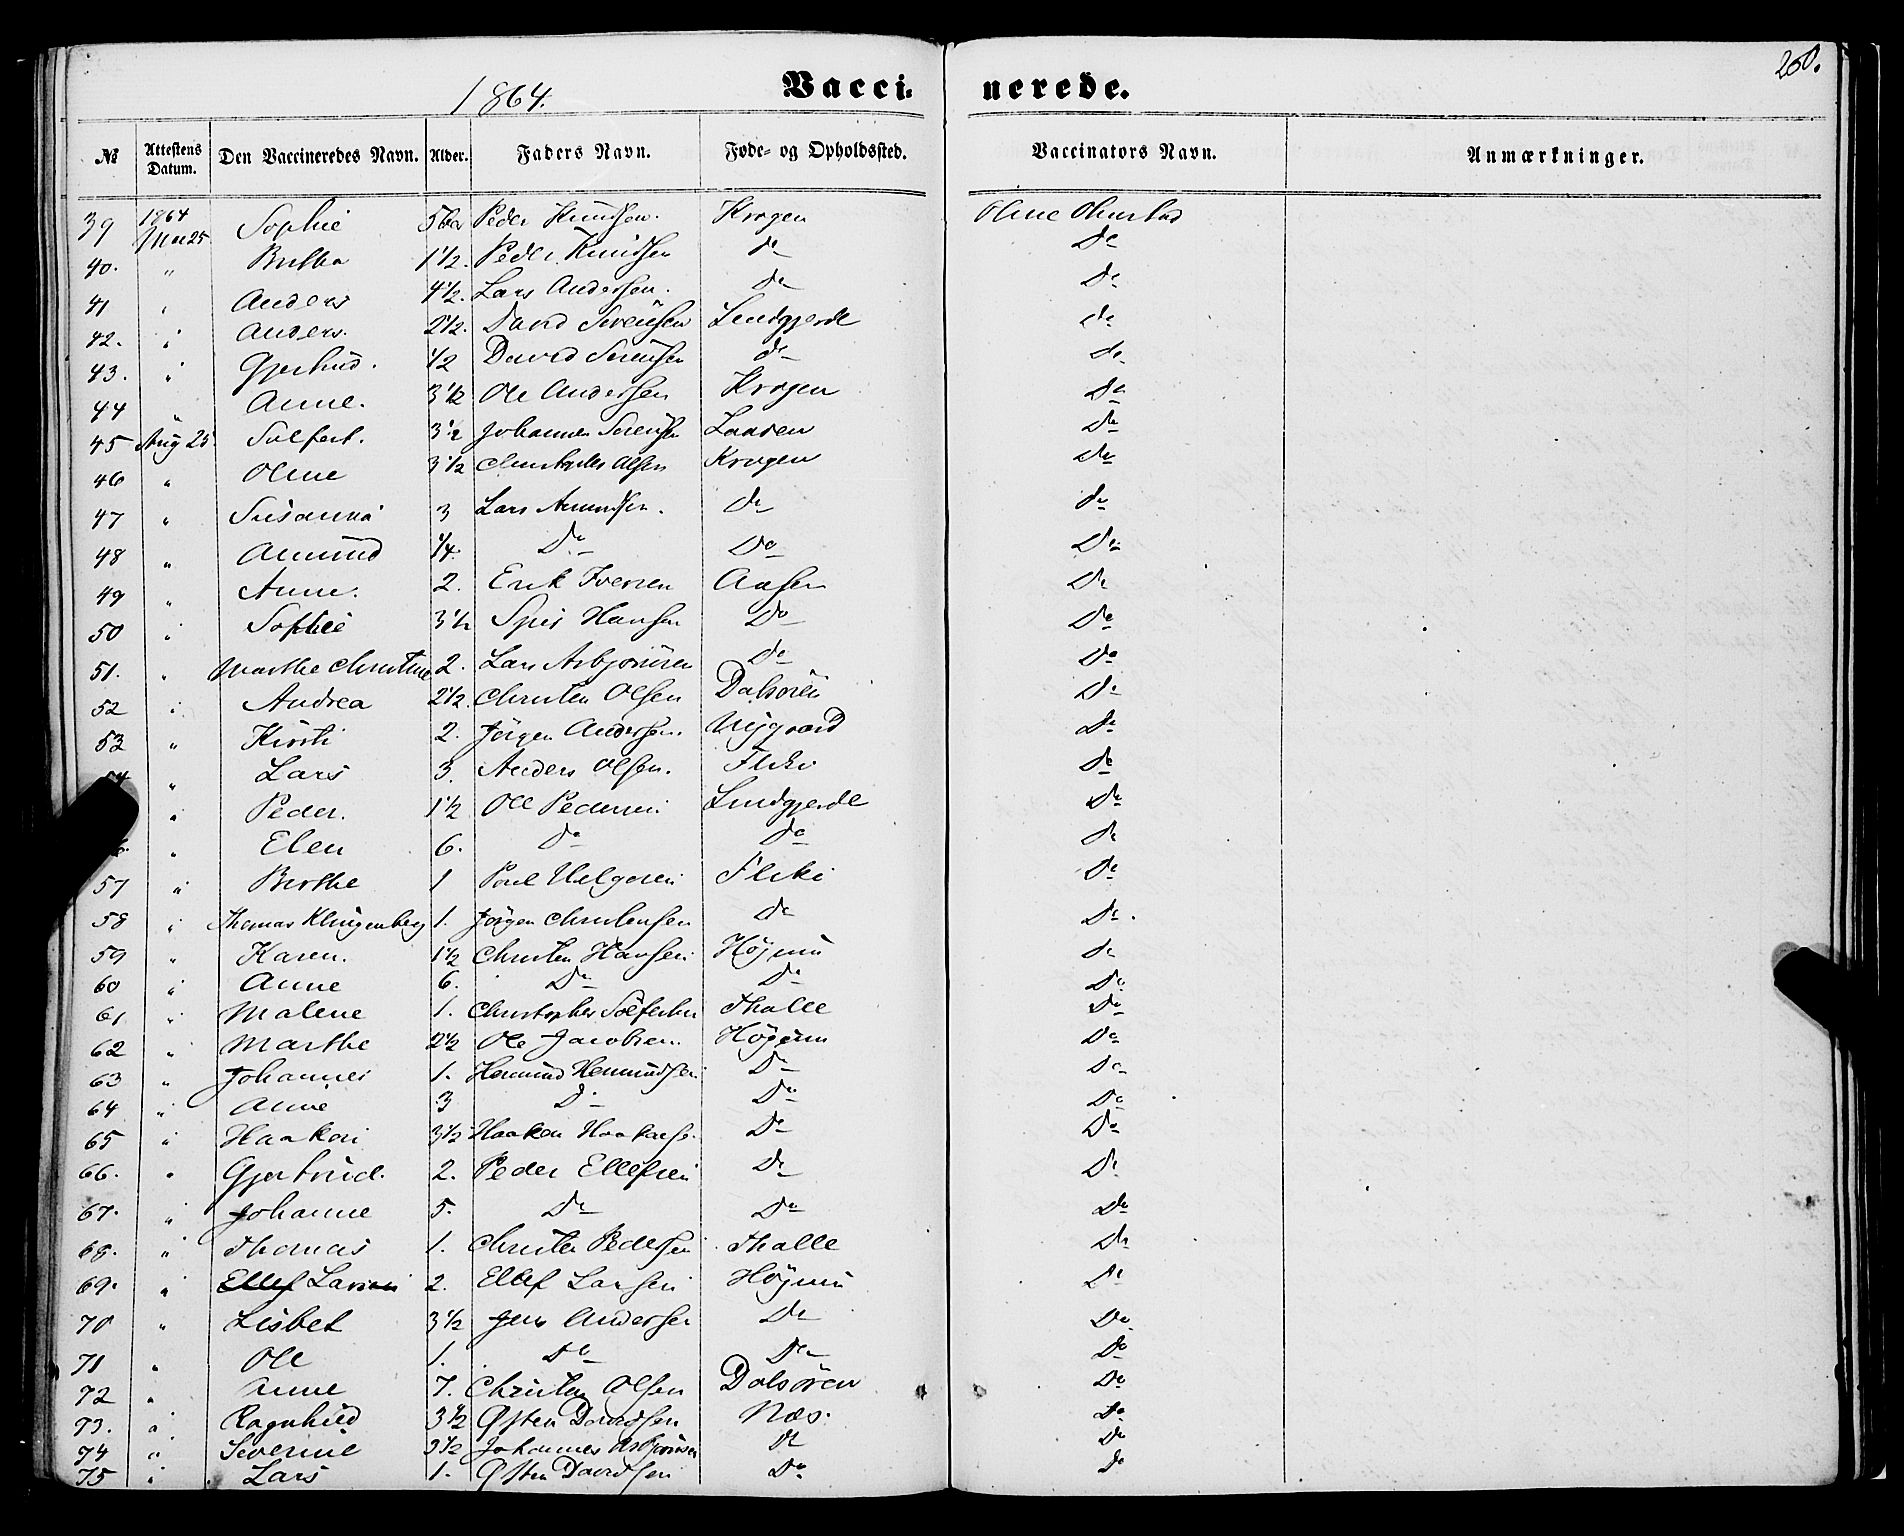 260.
1864. Vaccinerede.
№ Attestens Datum. Den Vaccineredes Navn. Alder. Faders Navn. Føde- og Opholdssted. Vaccinators Navn. Anmærkninger.
39 1864 Mai 25 Sophie Peder Knudsen. Krogen Oline
40. " Peder Knudsen do Do
41 " Anders 4½. Lars Andersen. do Do
42. " Anders. 2½. David Sørensen Lindgjerde do
43. " Gjertrud. ½ David Sørensen do do
44 " Anne. 3½ Ole Andersen Krogen Do
45 Aug 25 Solfest. 3½ Johannes Sørensen Do
46 " Oline 3½ Christopher Olsen Krogen Do
47 " Susanna 3 Lars Amundsen. do do
48 " Amund ¼. Do Do Do
49 " Anne. 2. Erik Iversen Aasen Do
50 " Sophie 3½ Hansen Do Do
51. " Marthe Christine 2. Lars Asbjørnsen do Do
52 " Andrea 2½. Christen Olsen Dalsøren Do
53 " Kirsti 2. Jörgen Andersen. Nygaard Do
54 " Lars 3. Anders Olsen. Flikei Do
" Peder. 1½ Ole Pedersen Lindgjerde Do
" Elen 6. Do do do
57 " Berthe 1 Poul Helgesen Fliki Do
58 " Thomas Klingenberg 1. Jörgen Christensen do Do.
59 " Karen. 1½ Christen Hansen Höjum do
60 " Anne 6. Do do Do
61 " Malene 1. Christopher Solfestsen Thalle Do
62 " Marthe 2½ Ole Jacobsen. Höjum Do
63 " Johannes 1. Hermund Hermundsen Do Do
64 " Anne 3 Do Do Do
65 " Haaken 3½ Haaken Haakens. Do Do
66. " Gjertrud. 2. Peder Ellefsen Do Do
67. " Johanne 5. Do Do Do
68. " Thomas 1. Christen Pedersen. Thalle Do
69. " Ellef Larsen 2. Ellef Larsen Höjum Do
70 " Lisbet 3½ Jens Andersen Do Do
71 " Ole 1. Do Do Do
72 " Anne 7. Christen Olsen Dalsören Do
73. " Ragnhild 3½ Østen Davidsen Næs. Do
74 " Severine 3½ Johannes Asbjørnsen do Do
75 " Lars 1. Østen Davidsen Do do